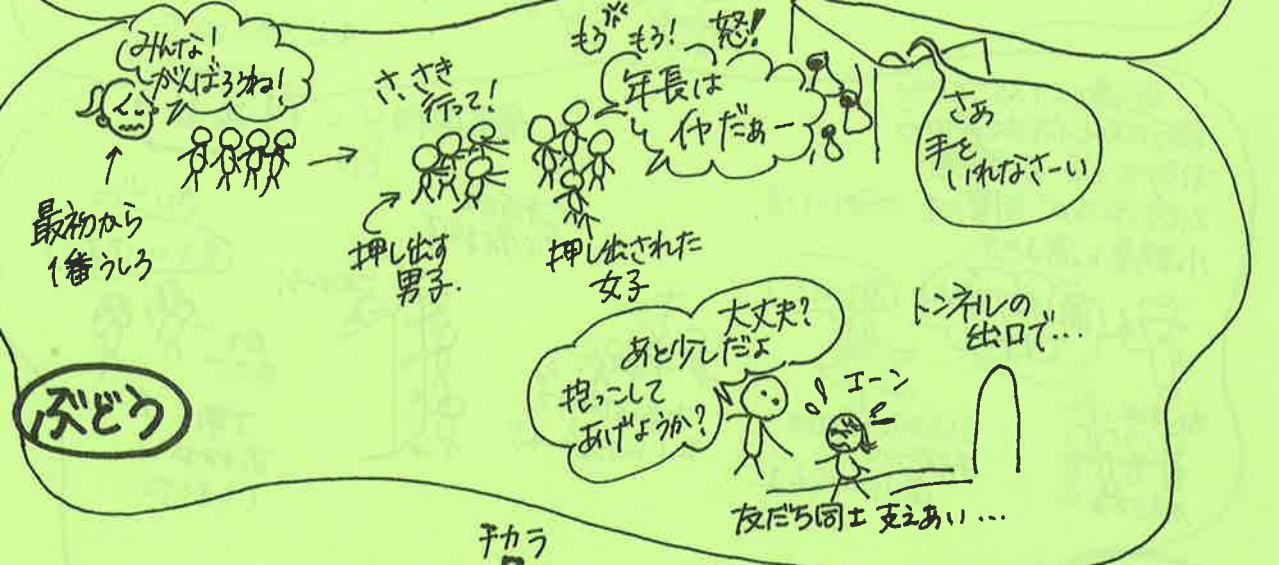 みんな!
がんばろうね!
最初から
1番うしろ
さ、さき
行って!
押し出す
男子.
もう もう! 怒!
年長は
イヤだぁー
押し出された
女子
さぁ
手を
いれなさーい
ぶどう
大丈夫?
あと少しだよ
抱っこして
あげようか?
エーン
トンネルの
出口で…
友だち同士 支えあい…
チカラ